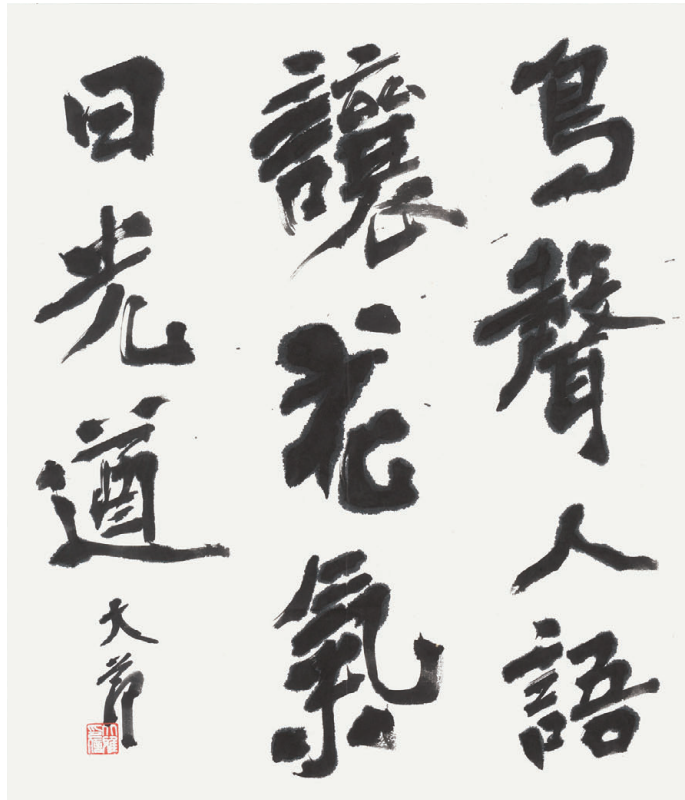 鳥聲人語
讓花氣
日光遒
大節